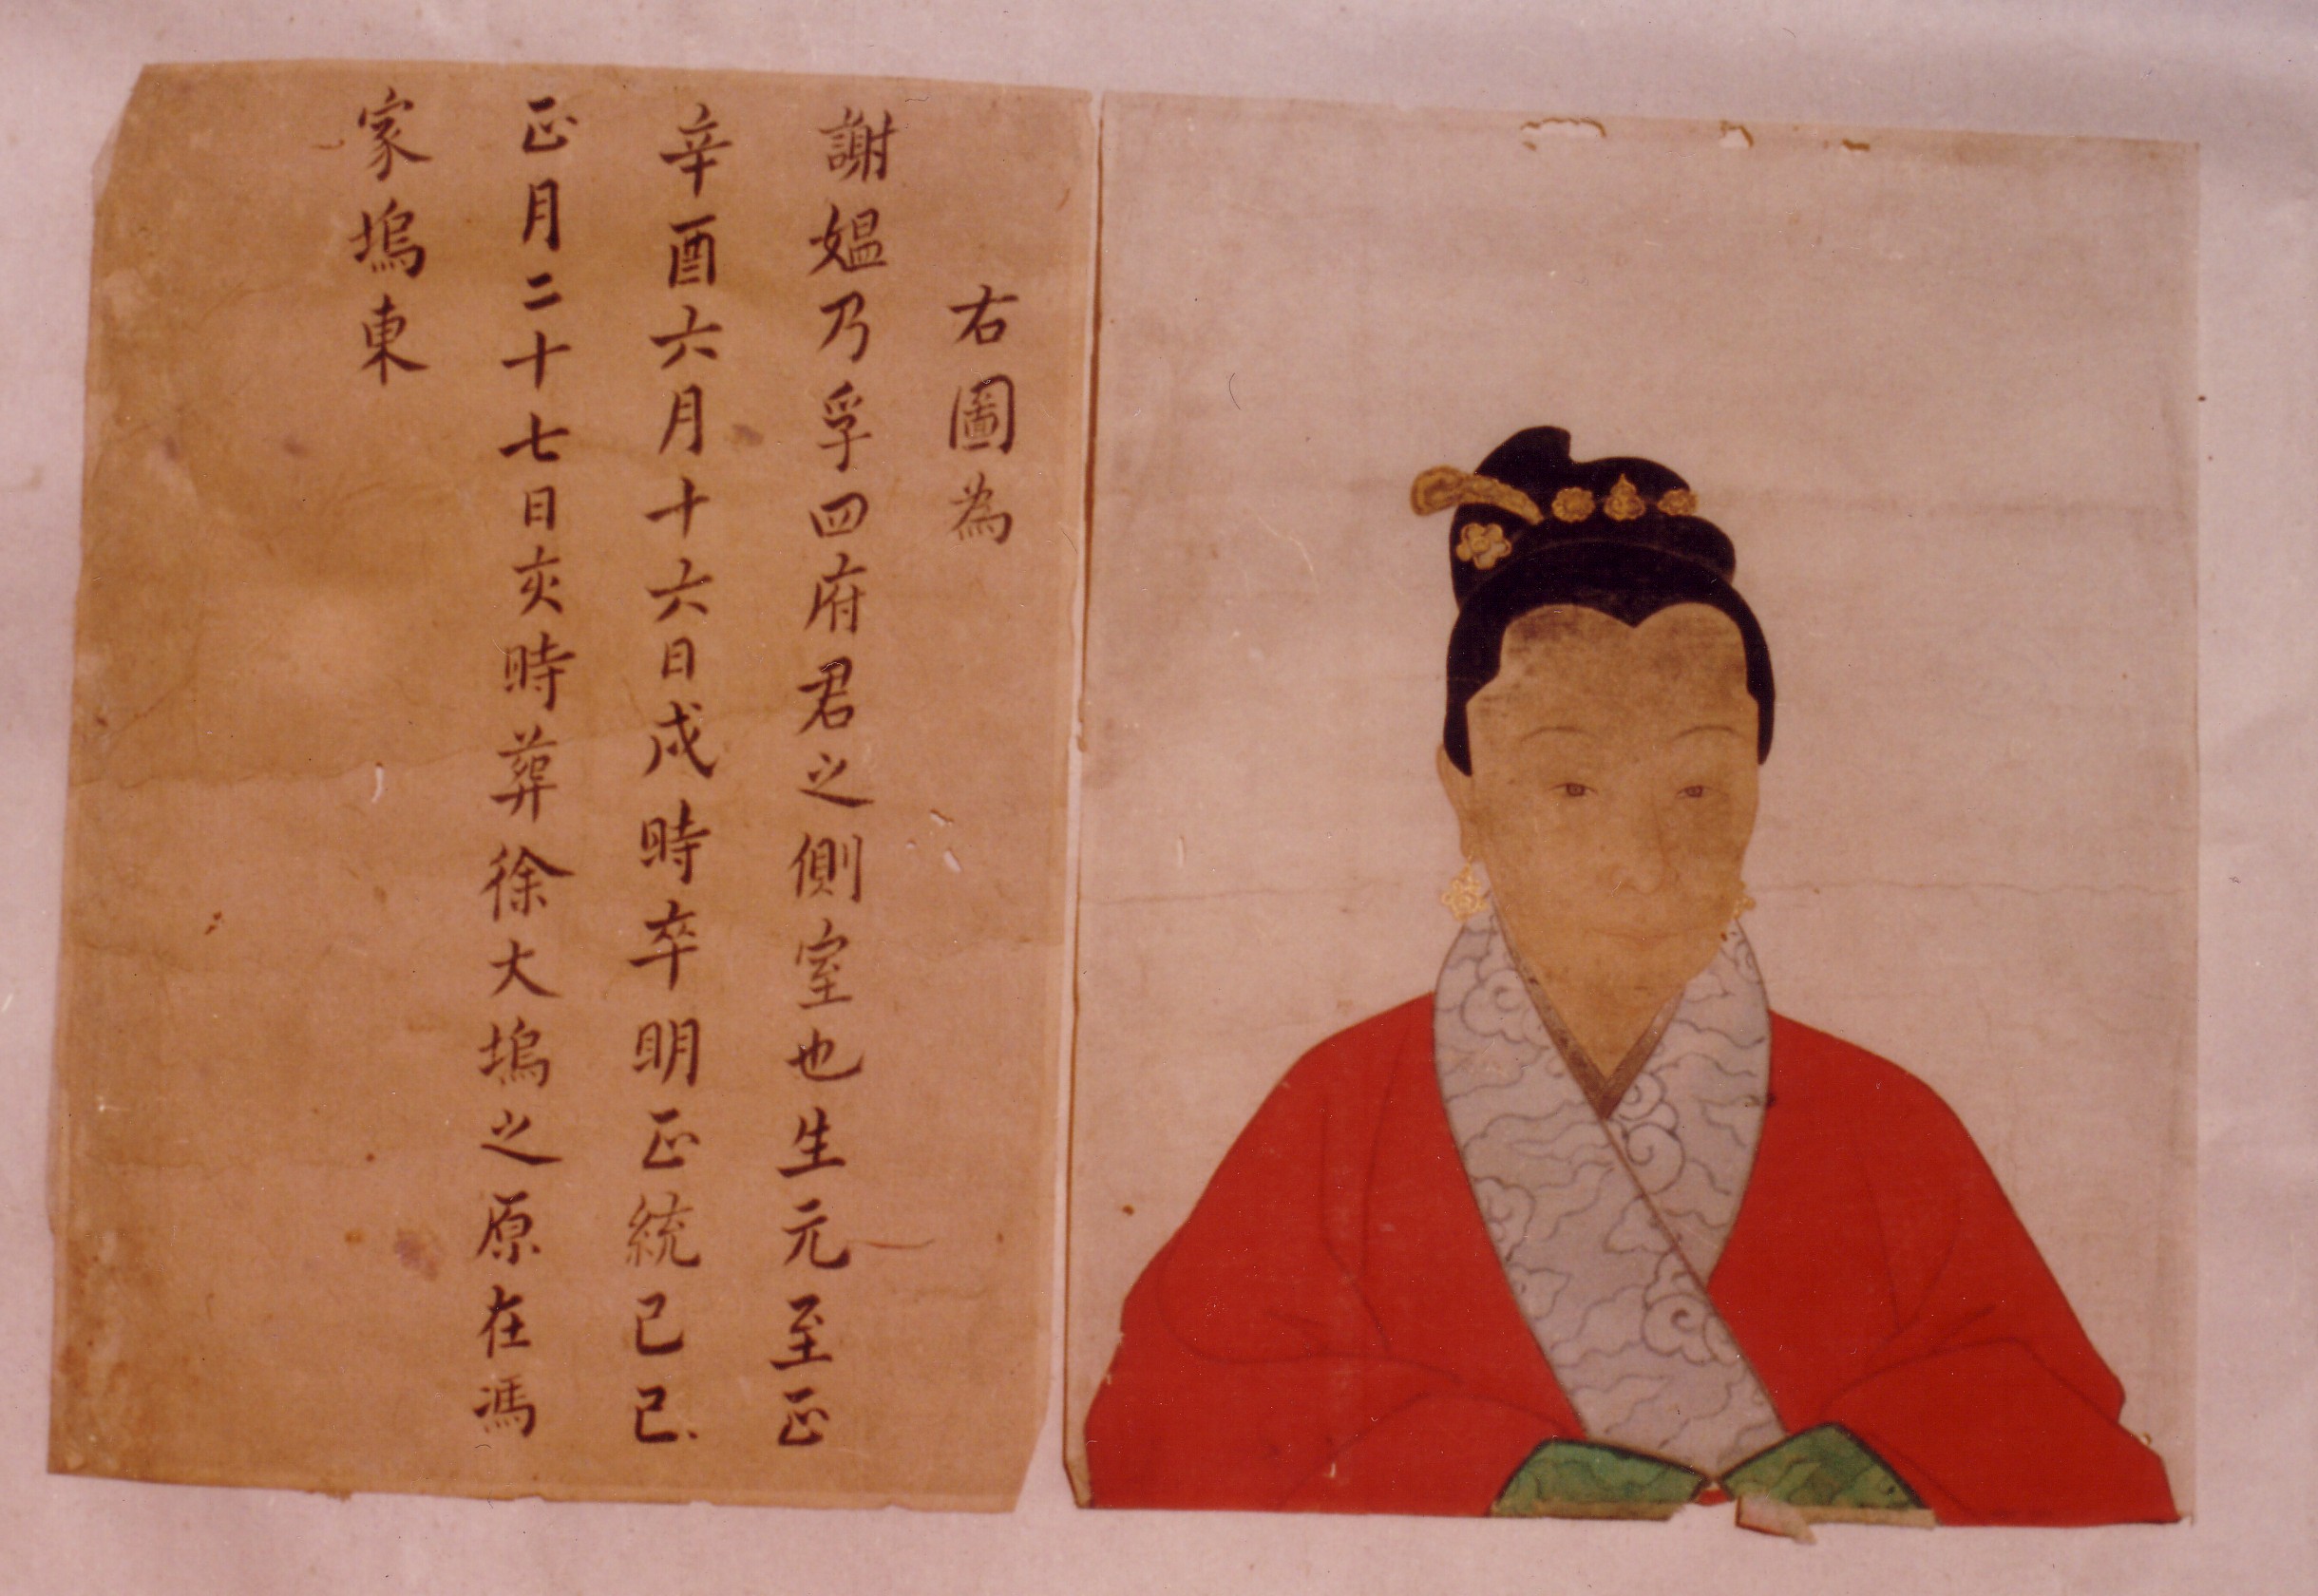 右圖為
謝媼乃孚四府君之側室也生元至正
辛酉六月十六日戌時卒明正統己巳
正月二十七日亥時葬徐大塢之原在馮
家塢東